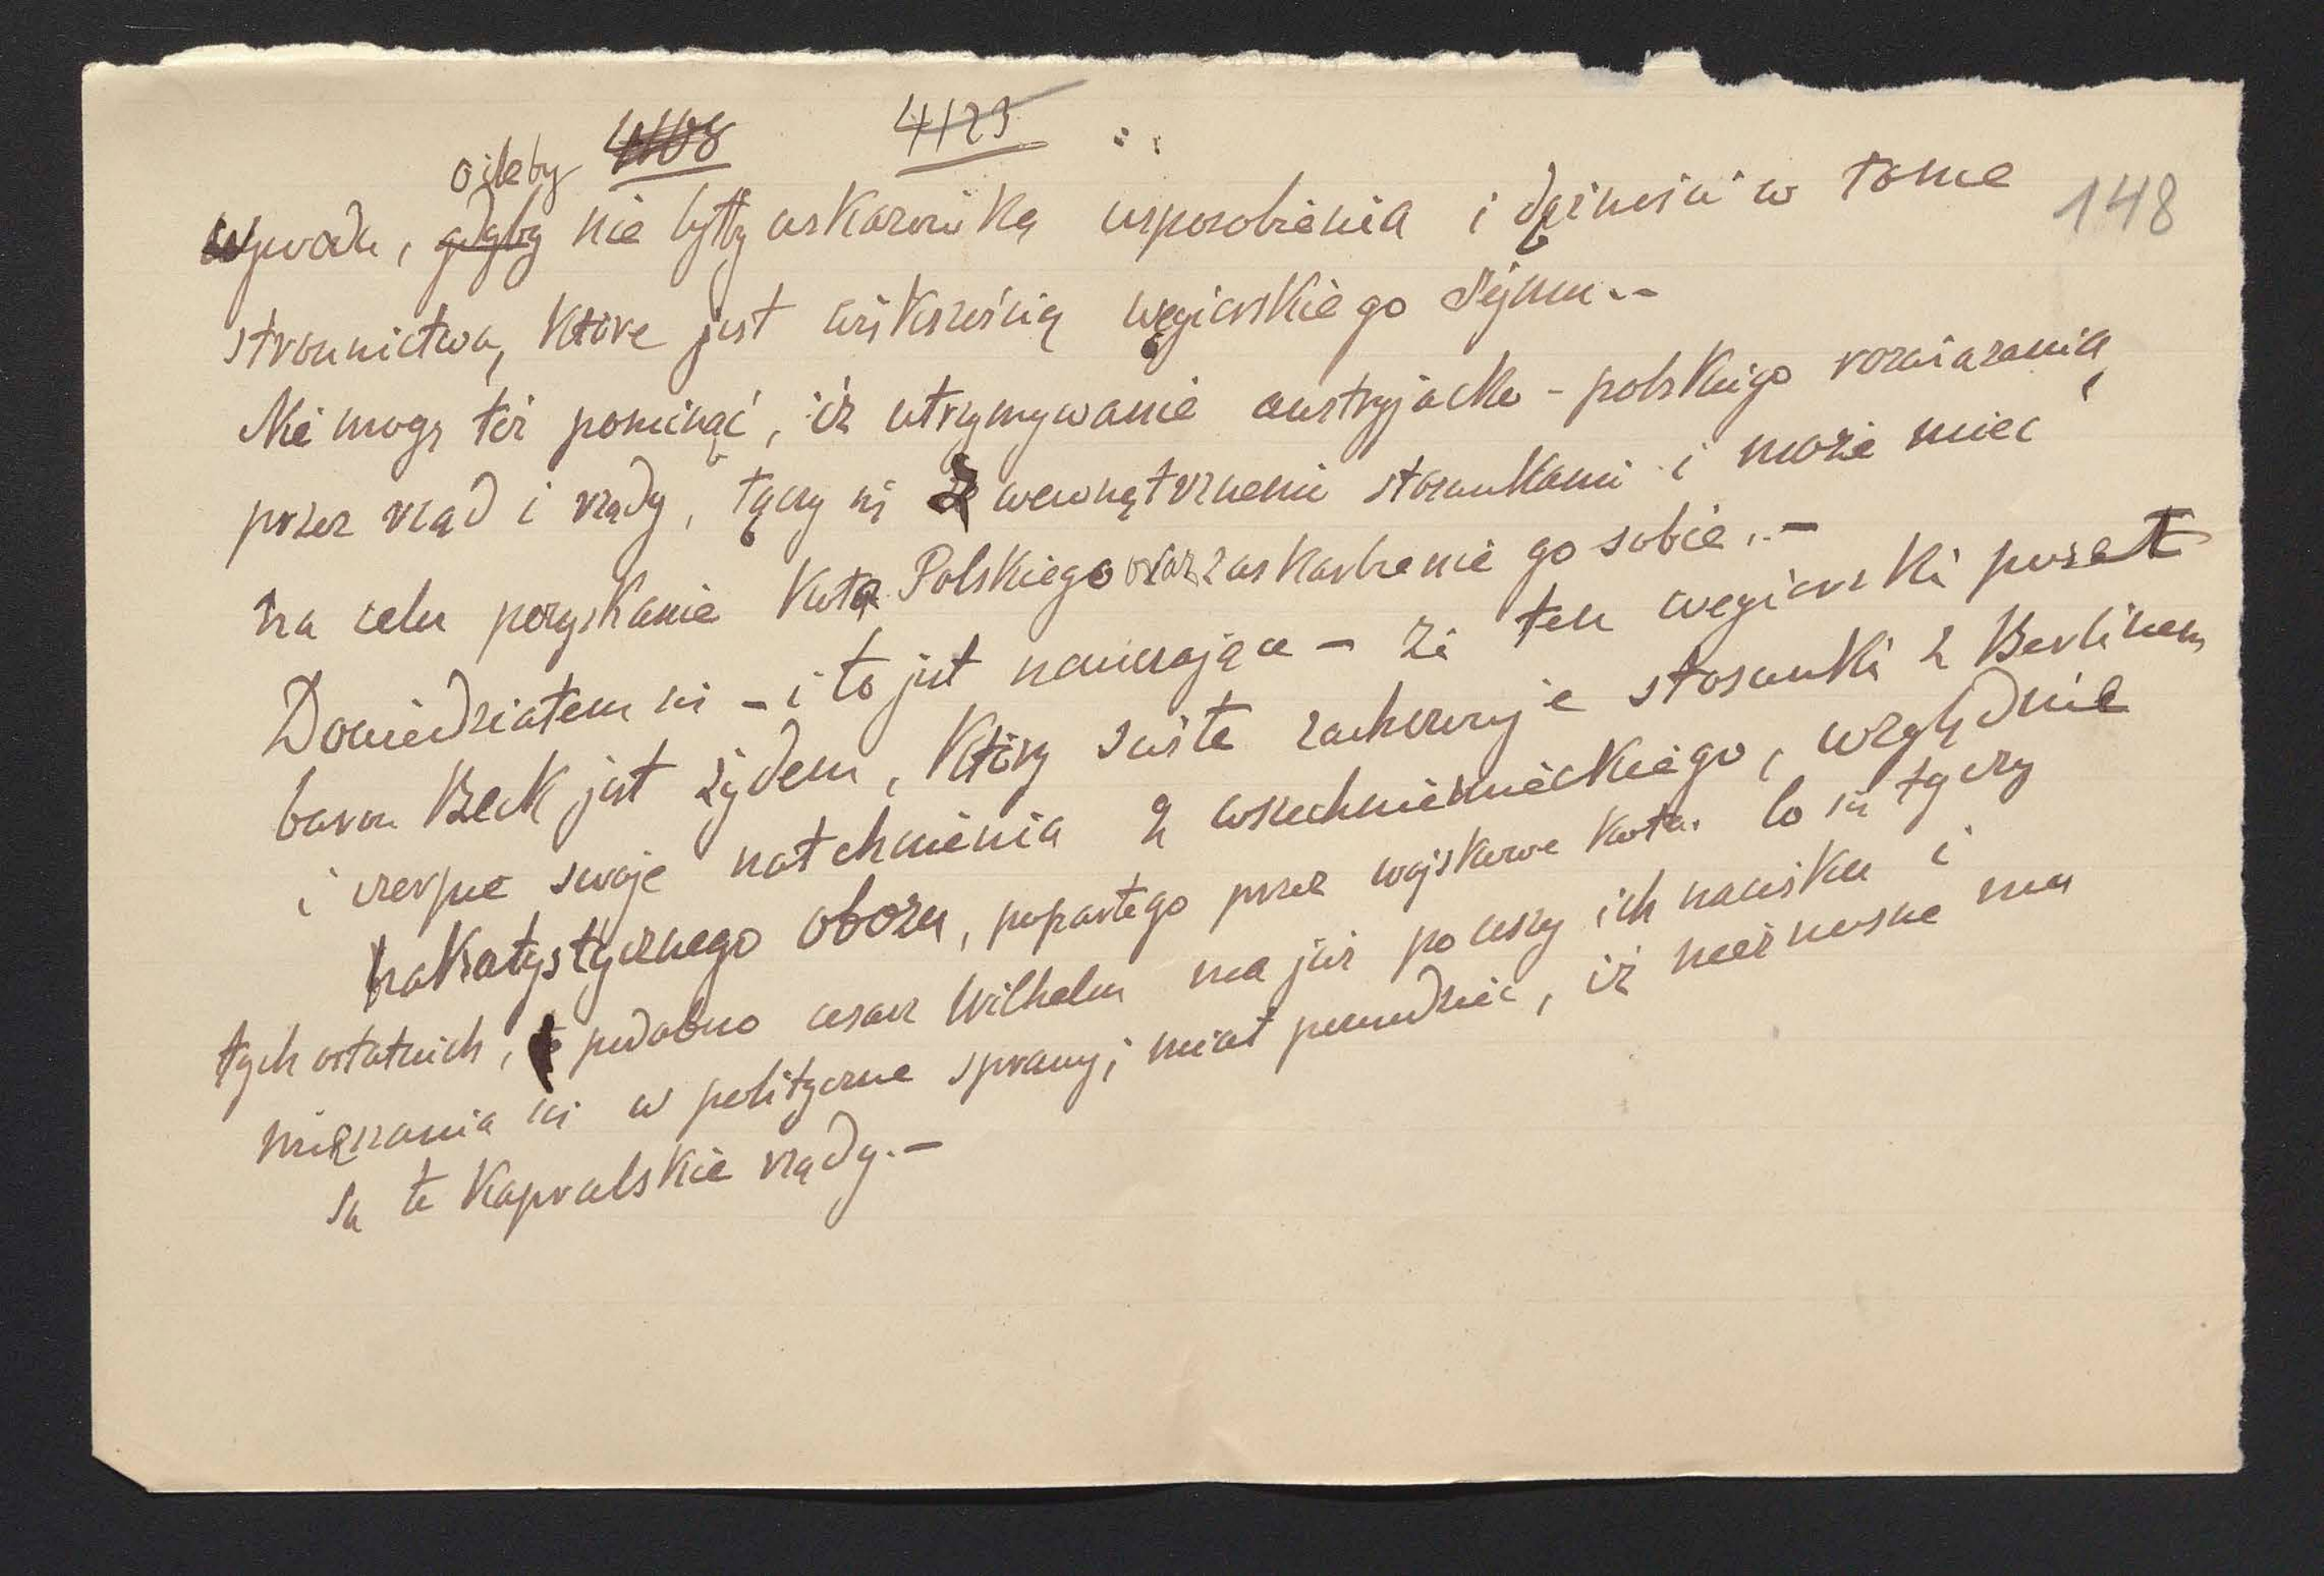 4123
148
oileby
wywodu, gdyby nie byłby wskazówką usposobienia i dążności w łonie
stronnictwa, które jest większością węgierskiego Sejmu.-
Nie mogę też pominąć, iż utrzymywanie austryjacko-polskiego rozwiązania,
przez rząd i rządy, łączy się z wewnętrznemi stosunkami i może mieć
na celu pozyskanie Koła Polskiego oraz zaskarbienie go sobie.-
Dowiedziałem się - i to jest nauczające - że ten węgierski poseł
baron Beck jest żydem, który ściśle zachowuje stosunki z Berlinem
i czerpie swoje natchnienia z wszechniemieckiego, względnie
hakatystycznego obozu, popartego przez wojskowe koła. Co się tyczy
tych ostatnich, podobno cesarz Wilhelm ma już po uszy ich nacisku i
mięszania się w polityczne sprawy; miał powiedzieć, iż nieznośne mu
są te kapralskie rządy.-